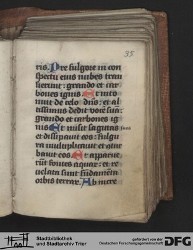 35
ris. Pre fulgore in con
spectu eius nubes tran
sierunt: grando et car
bones ignis Et into
nuit de celo dns: et al
tissimus dedit vocē suā:
grando et carbones ig
nis Et misit sagittas
et dissipauit eos: fulgu
ra multiplicauit et cōtur
bauit eos Et apparue
rūt fontes aquaꝝ: et re
uelata sunt fūdamēta
orbis terraꝝ Ab incre
Stadtbibliothek
und Stadtarchiv Trier
gefördert von der
Deutschen Forschungsgemeinschaft
DFG